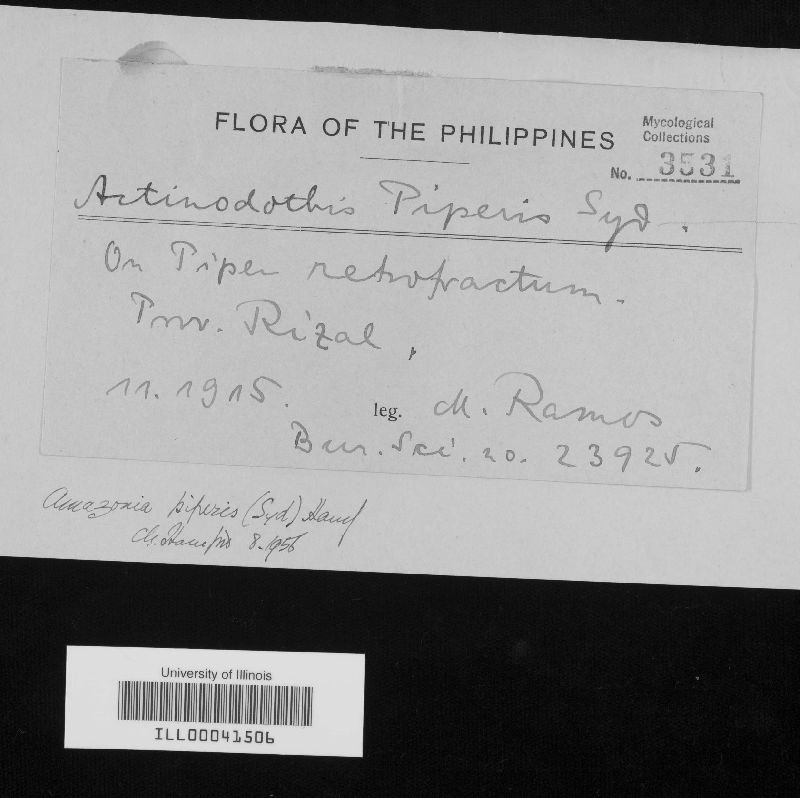 FLORA OF THE PHILIPPINES
Mycological
Collections
No. 3531
Actinodothis Piperis Syd.
On Piper retrofractum.
Prov. Rizal,
11. 1915.
leg. M. Ramos
Bur. Sci. no. 23925.
Amazonia piperis (Syd) Hansf
8.1956
University of Illinois
ILL00041506